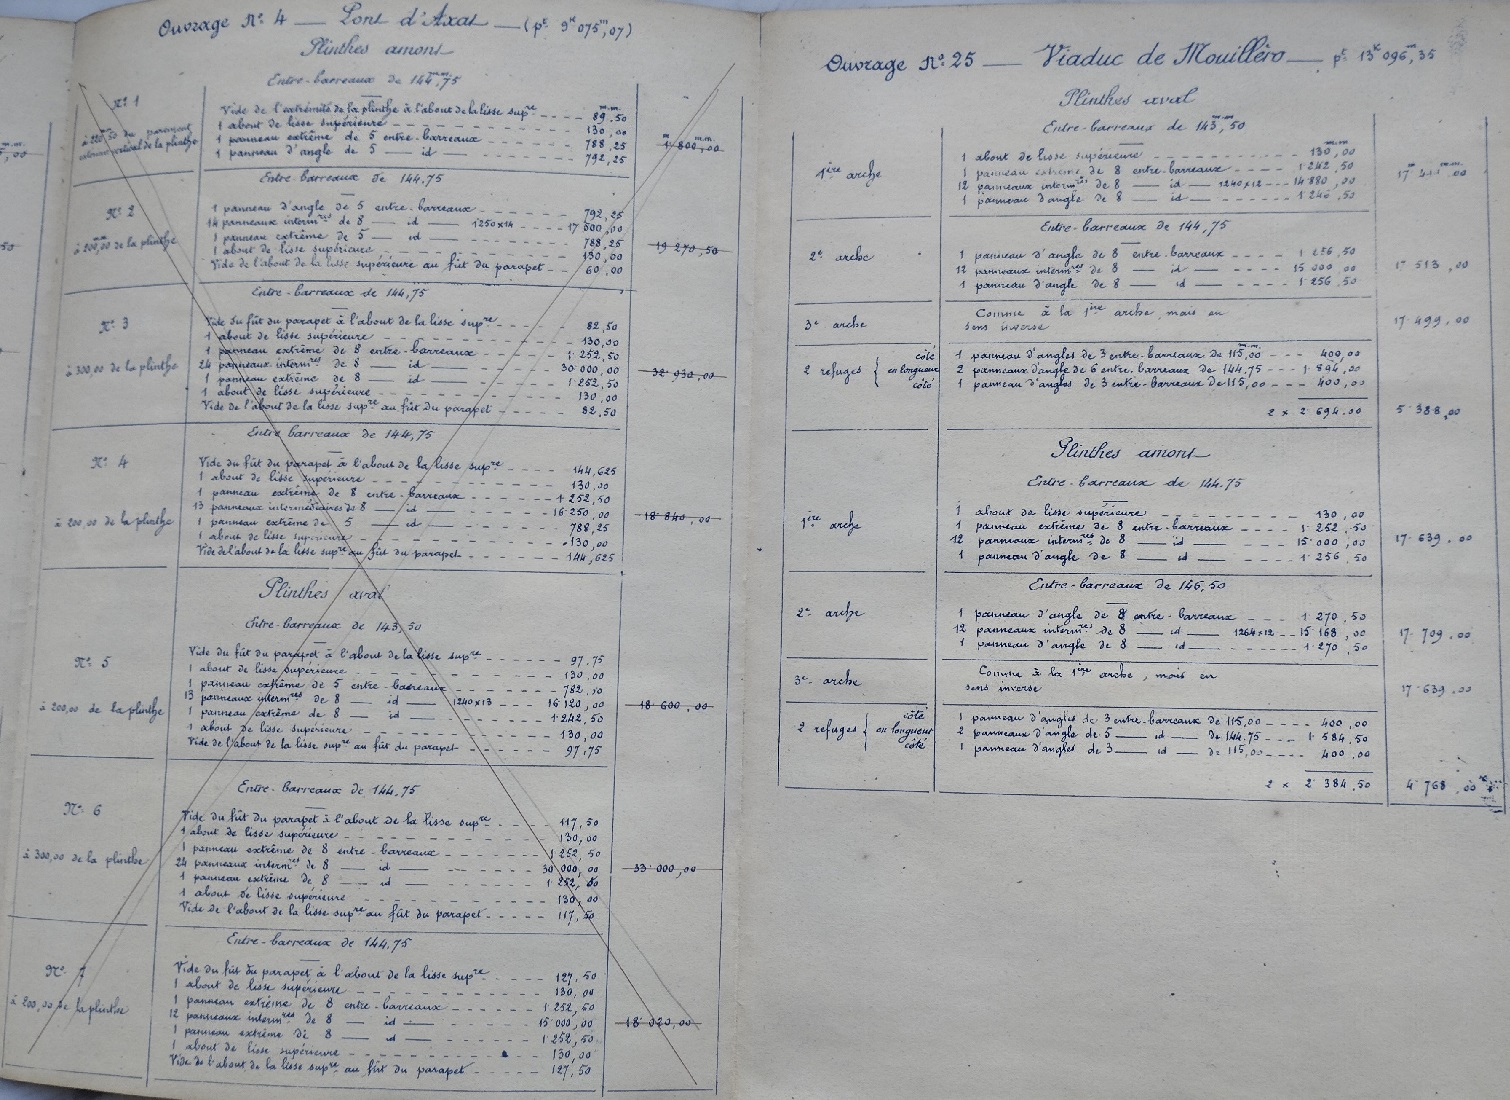 Ouvrage N° 4 — Pont d'Axat — (pt 9k 075m,07)
Plinthes amont
Entre-barreaux de 144,75
N° 1
Vide de l'extrémité de la plinthe à l'about de la lisse supre 89,50
1 about de lisse supérieure 130,00
à 220,50 du parement
extérieur vertical de la plinthe
1 panneau extrême de 5 entre-barreaux 788,25
1 panneau d'angle de 5 — id 792,25
1 800,00
Entre-barreaux de 144,75
N° 2
à 200,00 de la plinthe
1 panneau d'angle de 5 entre-barreaux 792,25
14 panneaux intermres de 8 — id — 1250x14 17 500,00
1 panneau extrême de 5 — id 788,25
1 about de lisse supérieure 130,00
Vide de l'about de la lisse supérieure au fût du parapet 60,00
19 270,50
Entre-barreaux de 144,75
N° 3
à 300,00 de la plinthe
Vide du fût du parapet à l'about de la lisse supre 82,50
1 about de lisse supérieure 130,00
1 panneau extrême de 8 entre-barreaux 1 252,50
24 panneaux intermres de 8 — id — 30 000,00
1 panneau extrême de 8 — id 1 252,50
1 about de lisse supérieure 130,00
Vide de l'about de la lisse supre au fût du parapet 82,50
32 930,00
Entre barreaux de 144,75
N° 4
à 200,00 de la plinthe
Vide du fût du parapet à l'about de la lisse supre 144,625
1 about de lisse supérieure 130,00
1 panneau extrême de 8 entre-barreaux 1 252,50
13 panneaux intermédiaires de 8 — id 16 250,00
1 panneau extrême de 5 — id 788,25
1 about de lisse supérieure 130,00
Vide de l'about de la lisse supre au fût du parapet 144,625
18 840,00
Plinthes aval
Entre-barreaux de 143,50
N° 5
à 200,00 de la plinthe
Vide du fût du parapet à l'about de la lisse supre 97,75
1 about de lisse supérieure 130,00
1 panneau extrême de 5 entre-barreaux 782,50
13 panneaux intermres de 8 — id — 1240x13 16 120,00
1 panneau extrême de 8 — id 1 242,50
1 about de lisse supérieure 130,00
Vide de l'about de la lisse supre au fût du parapet 97,75
18 600,00
Entre-barreaux de 144,75
N° 6
à 300,00 de la plinthe
Vide du fût du parapet à l'about de la lisse supre 117,50
1 about de lisse supérieure 130,00
1 panneau extrême de 8 entre-barreaux 1 252,50
24 panneaux intermres de 8 — id — 30 000,00
1 panneau extrême de 8 — id 1 252,50
1 about de lisse supérieure 130,00
Vide de l'about de la lisse supre au fût du parapet 117,50
33 000,00
Entre-barreaux de 144,75
N° 7
à 200,00 de la plinthe
Vide du fût du parapet à l'about de la lisse supre 127,50
1 about de lisse supérieure 130,00
1 panneau extrême de 8 entre-barreaux 1 252,50
12 panneaux intermres de 8 — id — 15 000,00
1 panneau extrême de 8 — id 1 252,50
1 about de lisse supérieure 130,00
Vide de l'about de la lisse supre au fût du parapet 127,50
18 020,00
Ouvrage N° 25 — Viaduc de Mouilléro — pt 13k 096m,35
Plinthes aval
Entre-barreaux de 143,50
1ère arche
1 about de lisse supérieure 130,00
1 panneau extrême de 8 entre-barreaux 1 242,50
12 panneaux intermres de 8 — id — 1240x12 14 880,00
1 panneau d'angle de 8 — id 1 246,50
Entre-barreaux de 144,75
2e arche
1 panneau d'angle de 8 entre-barreaux 1 256,50
12 panneaux intermres de 8 — id — 15 000,00
1 panneau d'angle de 8 — id 1 256,50
17 513,00
3e arche
Comme à la 1ère arche, mais en
sens inverse
17 499,00
2 refuges { côté en longueur côté
1 panneau d'angles de 3 entre-barreaux de 115,00 400,00
2 panneaux d'angle de 6 entre-barreaux de 144.75 1 894,00
1 panneau d'angles de 3 entre-barreaux de 115,00 400,00
2 x 2 694.00
5 388,00
Plinthes amont
Entre-barreaux de 144.75
1ère arche
1 about de lisse supérieure 130,00
1 panneau extrême de 8 entre-barreaux 1 252,50
12 panneaux intermres de 8 — id — 15 000,00
1 panneau d'angle de 8 — id 1 256,50
17 639,00
Entre-barreaux de 146,50
2e arche
1 panneau d'angle de 8 entre-barreaux 1 270,50
12 panneaux intermres de 8 — id — 1264x12 15 168,00
1 panneau d'angle de 8 — id 1 270,50
17 709,00
3e arche
Comme à la 1ère arche, mais en
sens inverse
17 639,00
2 refuges { côté en longueur côté
1 panneau d'angles de 3 entre-barreaux de 115,00 400,00
2 panneaux d'angle de 5 — id — de 144.75 1 584,50
1 panneau d'angles de 3 — id — de 115,00 400,00
2 x 2 384,50
4 768,00